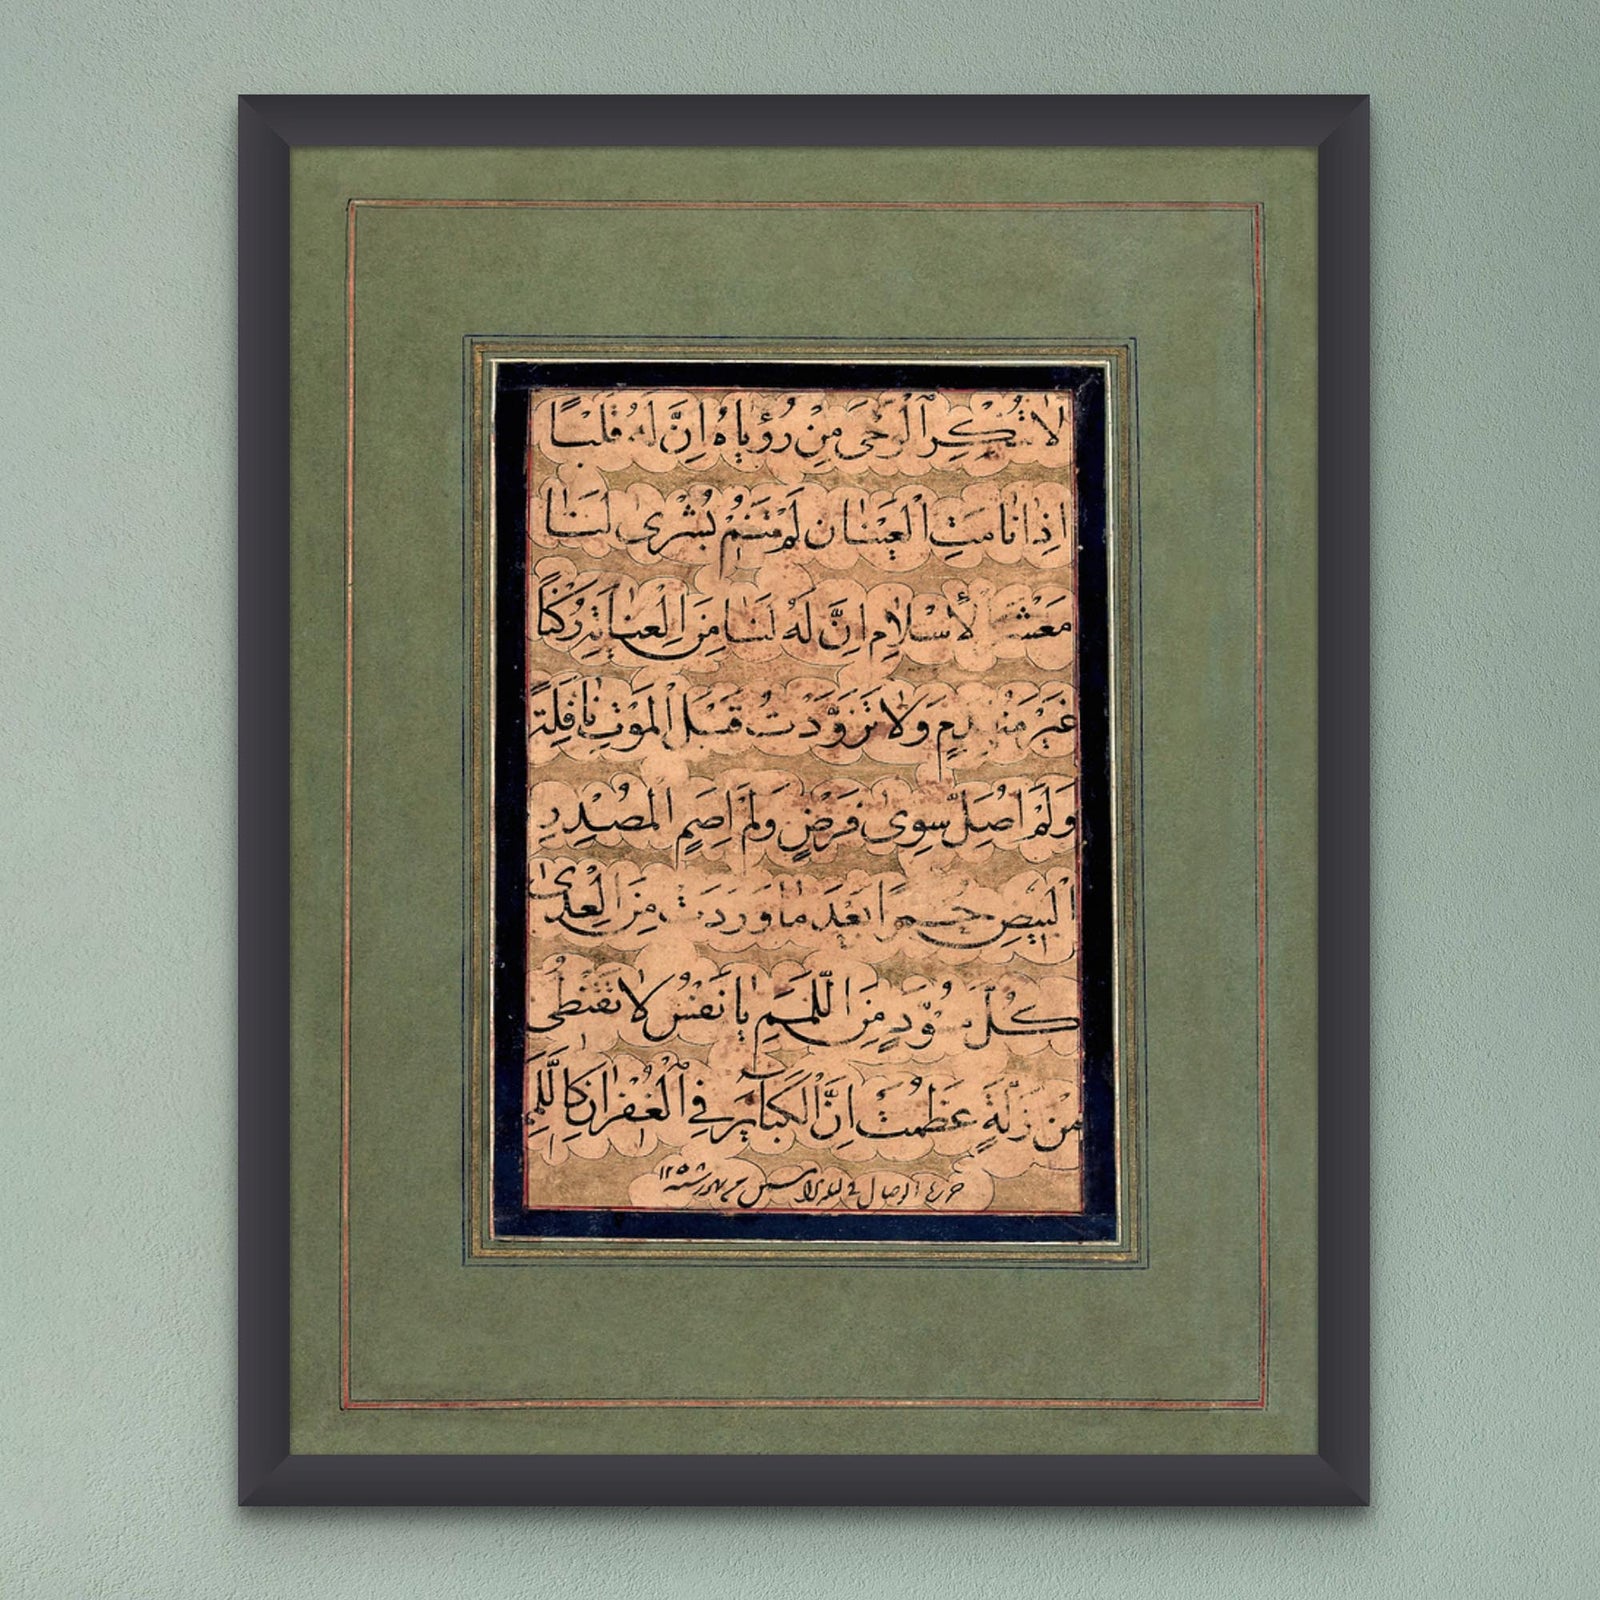 لَا تُنْكِرِ الْوَحْىَ مِنْ رُؤْيَاهُ اِنَّ لَهُ قَلْبًا
اِذَا نَامَتِ الْعَيْنَانِ لَمْ يَنَمِ بُشْرىٰ لَنَا
مَعْشَرَ الْأِسْلَامِ اِنَّ لَهُ لَنَا مِنَ الْعِنَايَةِ رُكْنًا
غَيْرَ مُنْهَدِمٍ وَلَا تَزَوَّدْتُ قَبْلَ الْمَوْتِ نَافِلَةً
وَلَمْ اُصَلِّ سِوىٰ فَرْضٍ وَلَمْ اَصُمِ الْمُصْدِرِ
الْبِيضِ حُمْرًا بَعْدَ مَا وَرَدَتْ مِنَ الْعِدىٰ
كُلَّ مُسْوَدٍّ مِنَ اللِّمَمِ يَا نَفْسُ لَا تَقْنَطِى
مِنْ زَلَّةٍ عَظُمَتْ اِنَّ الْكَبَائِرَ فِى الْغُفْرَانِ كَاللَّمَمِ
حرره الوصال فى سنه ١٢٥